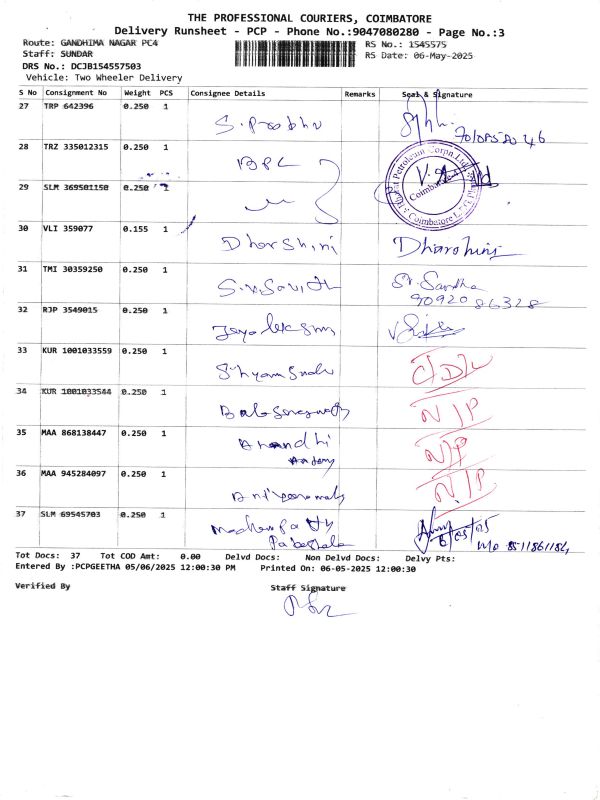 THE PROFESSIONAL COURIERS, COIMBATORE
Delivery Runsheet - PCP - Phone No.:9047080280 - Page No.:3
Route: GANDHIMA NAGAR PC4 RS No.: 1545575
Staff: SUNDAR RS Date: 06-May-2025
DRS No.: DCJB154557503
Vehicle: Two Wheeler Delivery
S No Consignment No Weight PCS Consignee Details Remarks Seal & Signature
27 TRP 642396 0.250 1 S. Prabhu
28 TRZ 335012315 0.250 1 BPC
29 SLM 369501150 0.250 1
30 VLI 359077 0.155 1 Dharshini Dharshini
31 TMI 30359250 0.250 1
9092086328
32 RJP 3549015 0.250 1
33 KUR 1001033559 0.250 1
34 KUR 1001033544 0.250 1 N/P
35 MAA 868138447 0.250 1 Anandhi N/P
36 MAA 945284097 0.250 1 N/P
37 SLM 69545703 0.250 1
Tot Docs: 37 Tot COD Amt: 0.00 Delvd Docs: Non Delvd Docs: Delvy Pts:
Entered By :PCPGEETHA 05/06/2025 12:00:30 PM Printed On: 06-05-2025 12:00:30
Verified By Staff Signature